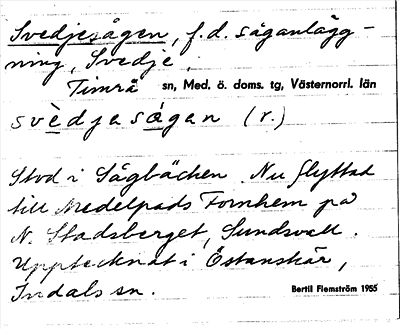 Svedjesågen, f.d. såganlägg-
ning, Svedje,
Timrå sn, Med. ö. doms. tg, Västernorrl. län
svèdjasågan (r.)
Stod i Sågbäcken. Nu flyttad
till Medelpads Fornhem på
N. Stadsberget, Sundsvall.
Upptecknat i Östanskär,
Indals sn.
Bertil Flemström 1955